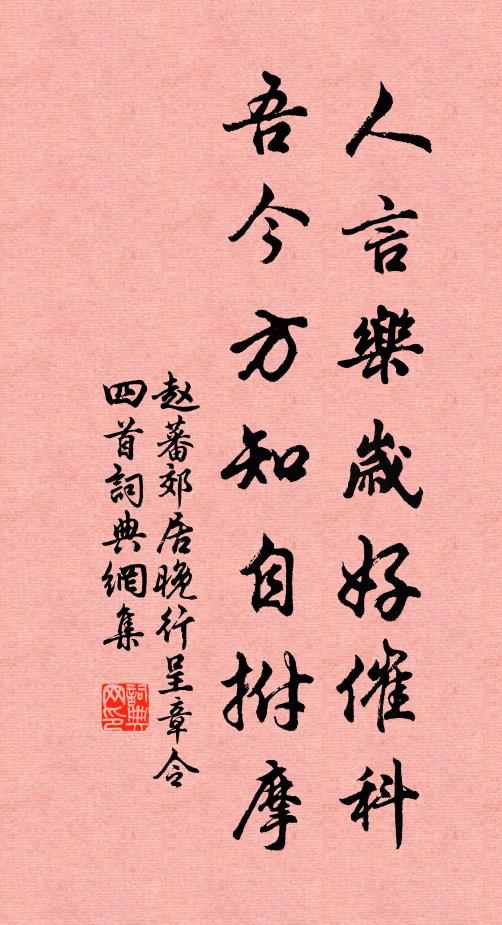 人言樂歲好催科
吾今方知自拊摩
赵蕃郊居晚行呈章令
四首詞典網集
詞典网印